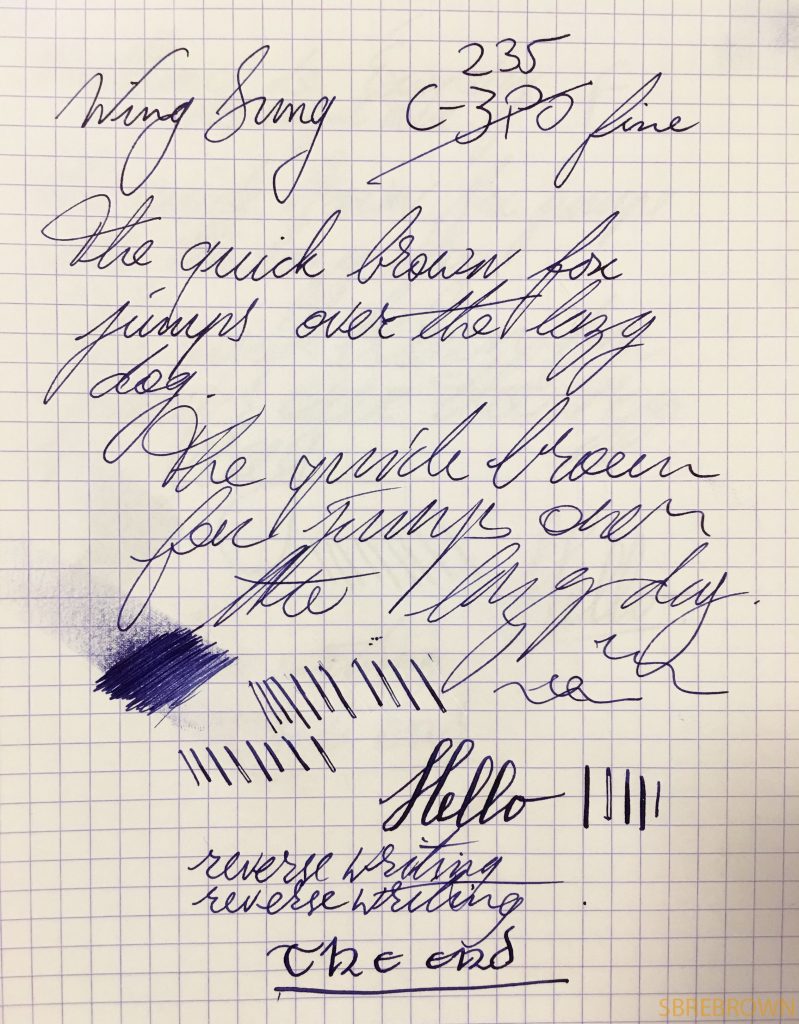 235
Wing Sung ~~C-3PO~~ fine
The quick brown fox
jumps over the lazy
dog.
The quick brown
fox jumps over
the lazy dog.
Hello
reverse writing
reverse writing
The end
SBREBROWN